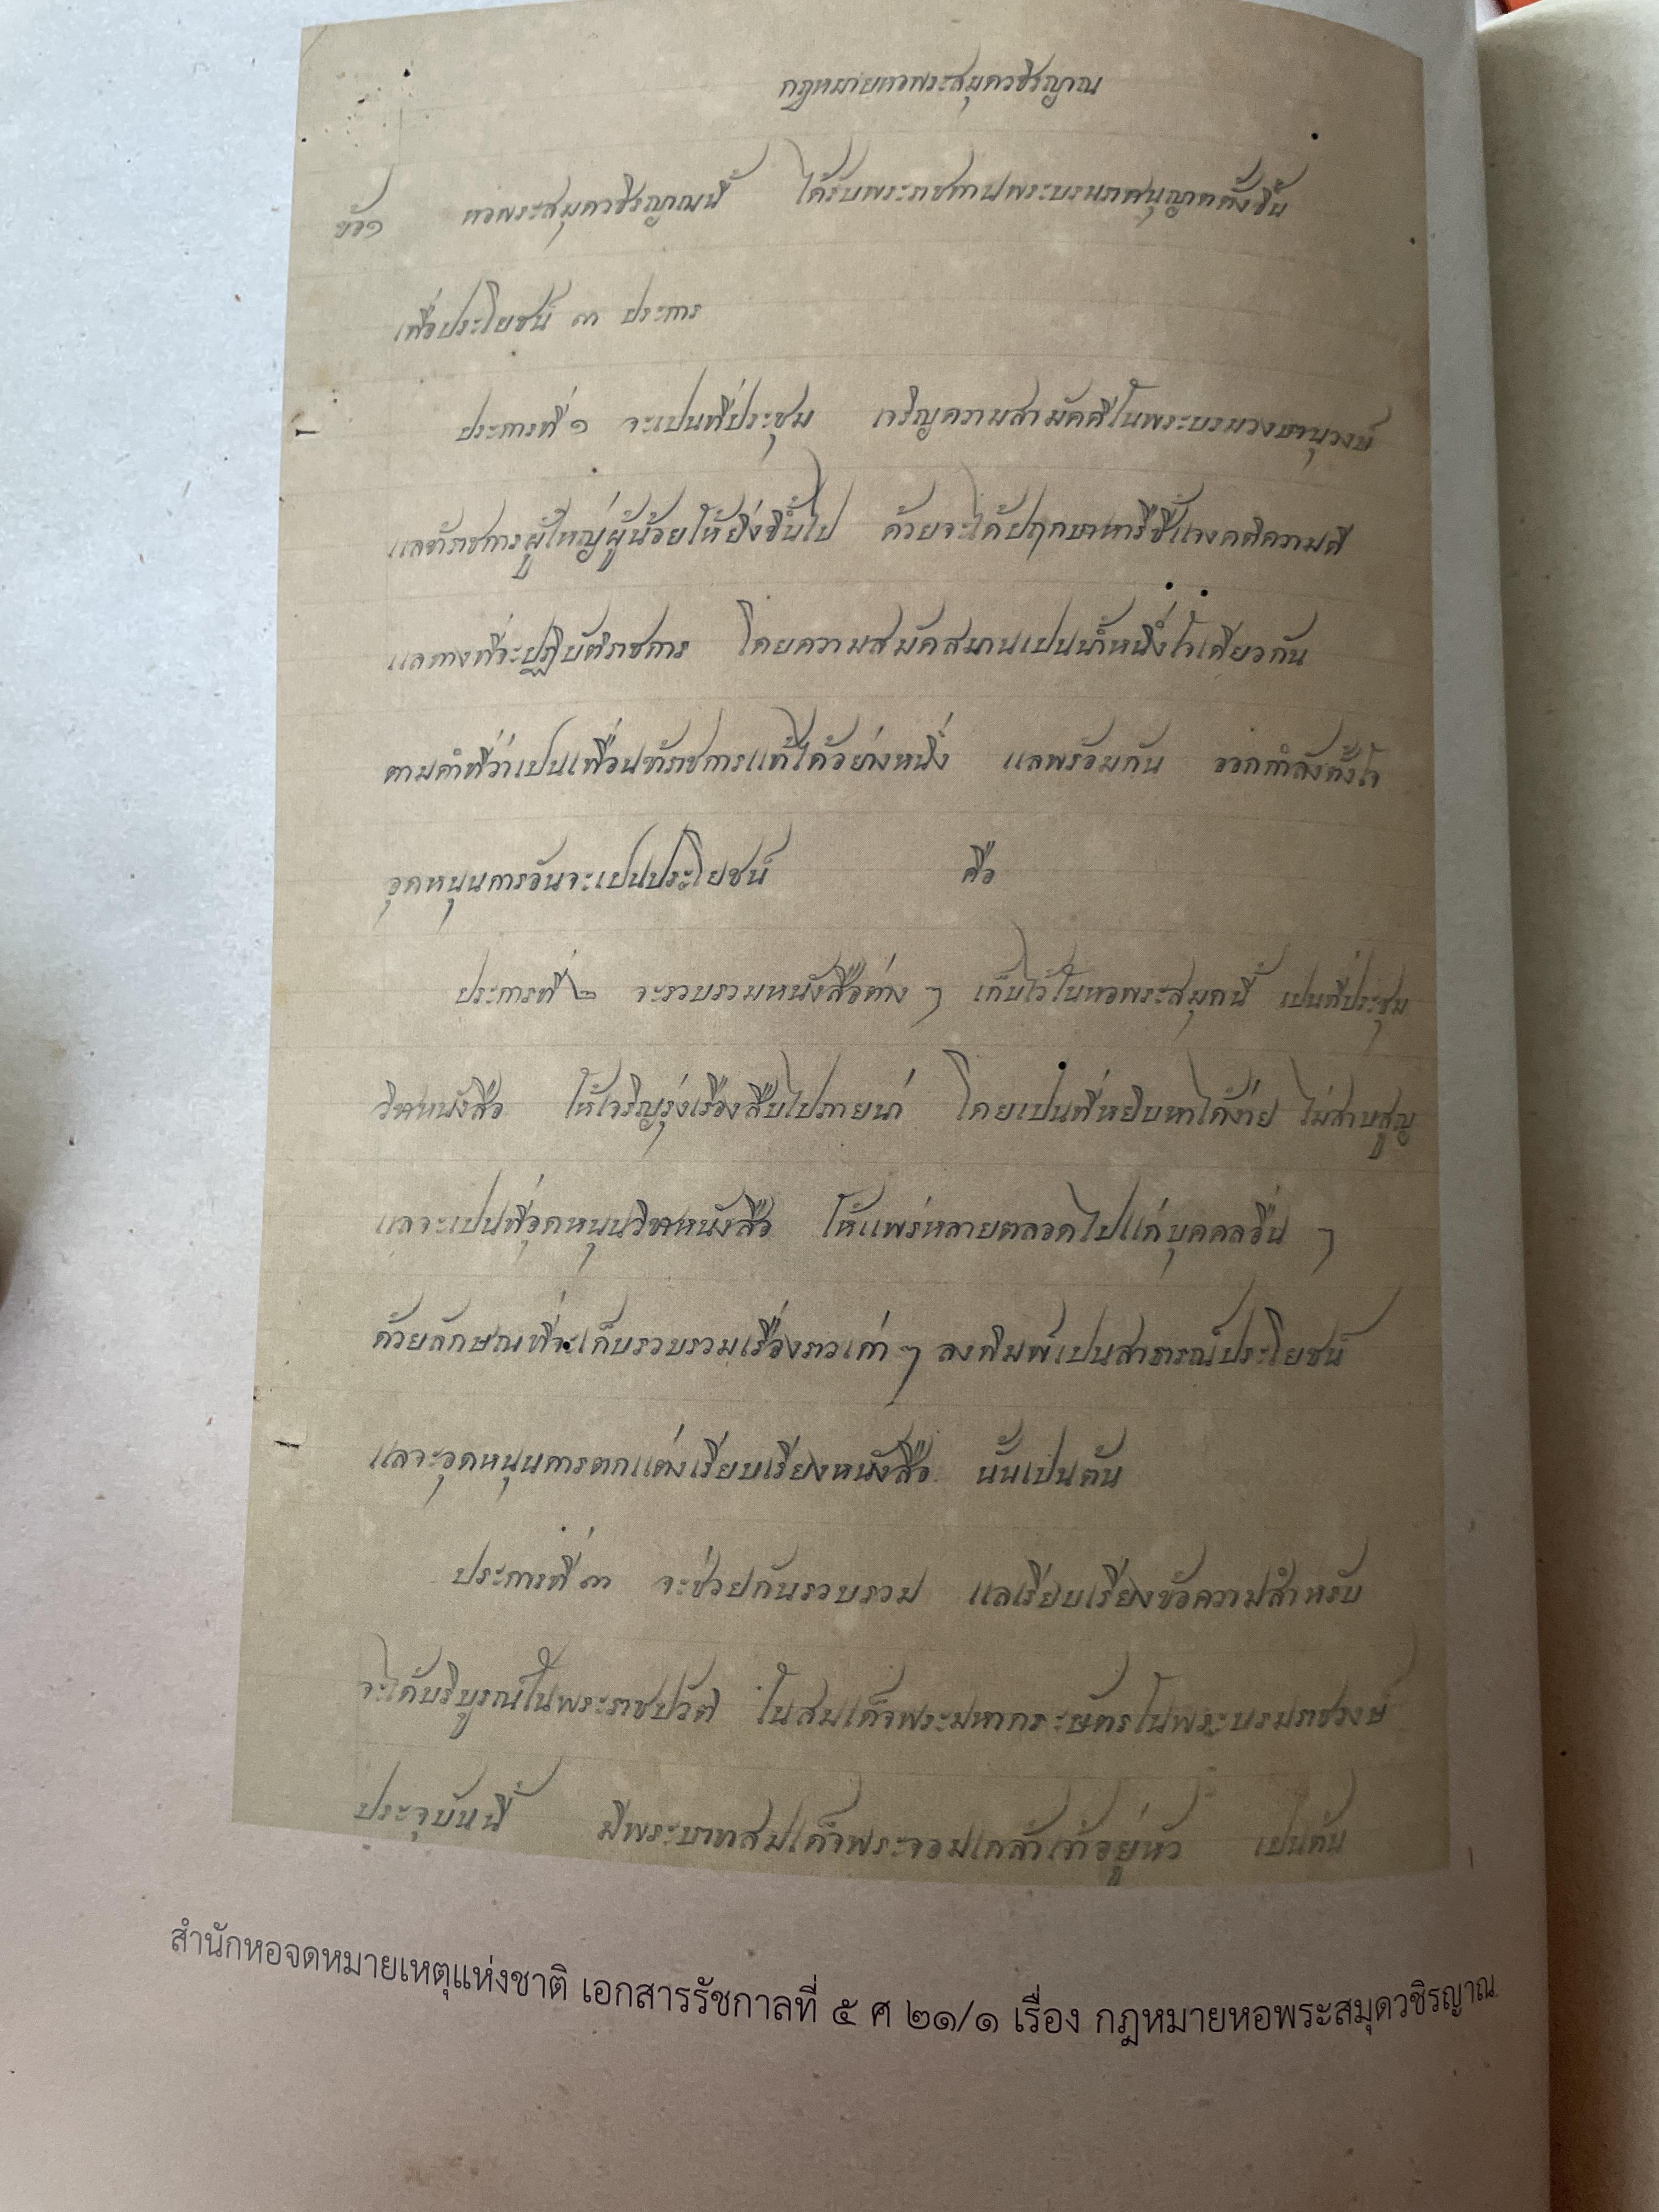 กฎหมายหอพระสมุดวชิรญาณ
ข้อ๑ หอพระสมุดวชิรญาณนี้ ได้รับพระราชทานพระบรมราชานุญาตตั้งขึ้น
เพื่อประโยชน์ ๓ ประการ
ประการที่ ๑ จะเปนที่ประชุม เจริญความสามัคคีในพระบรมวงษานุวงษ์
แลข้าราชการผู้ใหญ่ผู้น้อยให้ยิ่งขึ้นไป ด้วยจะได้ปฤกษาหารือชี้แจงคดีความดี
แลทางที่จะปฏิบัติราชการ โดยความสมัคสมานเปนน้ำหนึ่งใจเดียวกัน
ตามคำที่ว่าเปนเพื่อนข้าราชการแท้ได้อย่างหนึ่ง แลพร้อมกัน ออกกำลังตั้งใจ
อุดหนุนการอันจะเปนประโยชน์ คือ
ประการที่ ๒ จะรวบรวมหนังสือต่าง ๆ เก็บไว้ในหอพระสมุดนี้ เปนที่ประชุม
วิชาหนังสือ ให้เจริญรุ่งเรืองสืบไปภายน่า โดยเปนที่หยิบหาได้ง่าย ไม่สาบสูญ
แลจะเปนที่อุดหนุนวิชาหนังสือ ให้แพร่หลายตลอดไปแก่บุคคลอื่น ๆ
ด้วยลักษณที่จะเก็บรวบรวมเรื่องราวเก่า ๆ ลงพิมพ์เปนสาธารณ์ประโยชน์
แลจะอุดหนุนการตกแต่งเรียบเรียงหนังสือ นั้นเปนต้น
ประการที่ ๓ จะช่วยกันรวบรวม แลเรียบเรียงข้อความสำหรับ
จะได้บริบูรณ์ในพระราชปวัติ ในสมเด็จพระมหากระษัตรในพระบรมราชวงษ์
ประจุบันนี้ มีพระบาทสมเด็จพระจอมเกล้าเจ้าอยู่หัว เปนต้น
สำนักหอจดหมายเหตุแห่งชาติ เอกสารรัชกาลที่ ๕ ศ ๒๑/๑ เรื่อง กฎหมายหอพระสมุดวชิรญาณ